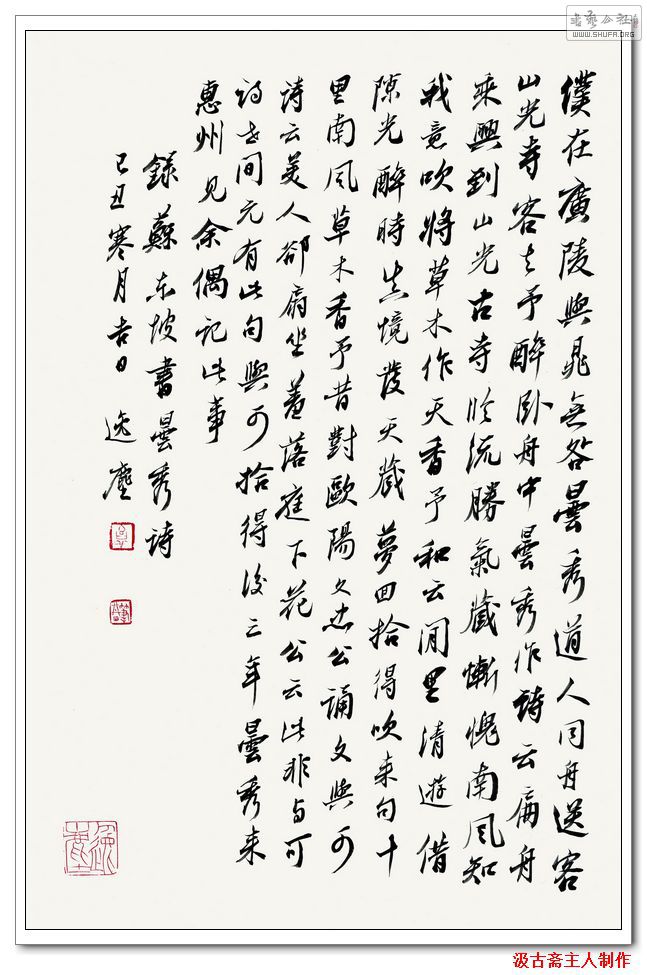 僕在廣陵與晁无咎曇秀道人同舟送客
山光寺客去予醉卧舟中曇秀作詩云扁舟
乘興到山光古寺臨流勝氣藏慚愧南風知
我意吹將草木作天香予和云閒里清遊借
隙光醉時真境發天藏夢回拾得吹来句十
里南風草木香予昔對歐陽文忠公誦文與可
詩云美人卻扇坐羞落庭下花公云此非与可
詩世間元有此句與可拾得後三年曇秀来
惠州見余偶記此事
錄蘇东坡書曇秀詩
己丑寒月吉日逸塵
逸塵
书艺公社
WWW.SHUFA.ORG
汲古斋主人制作